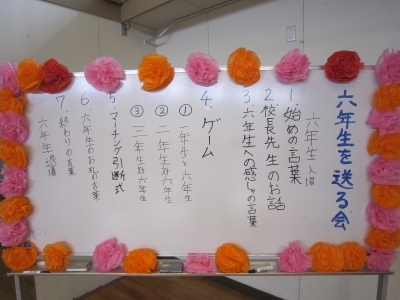 六年生を送る会
六年生入場
1.始めの言葉
2.校長先生のお話
3.六年生への感しゃの言葉
4.ゲーム
① 一年生と六年生
② 二年生対六年生
③ 三年生対六年生
5.マーチング引断式
6.六年生のお礼の言葉
7.終わりの言葉
六年生退場